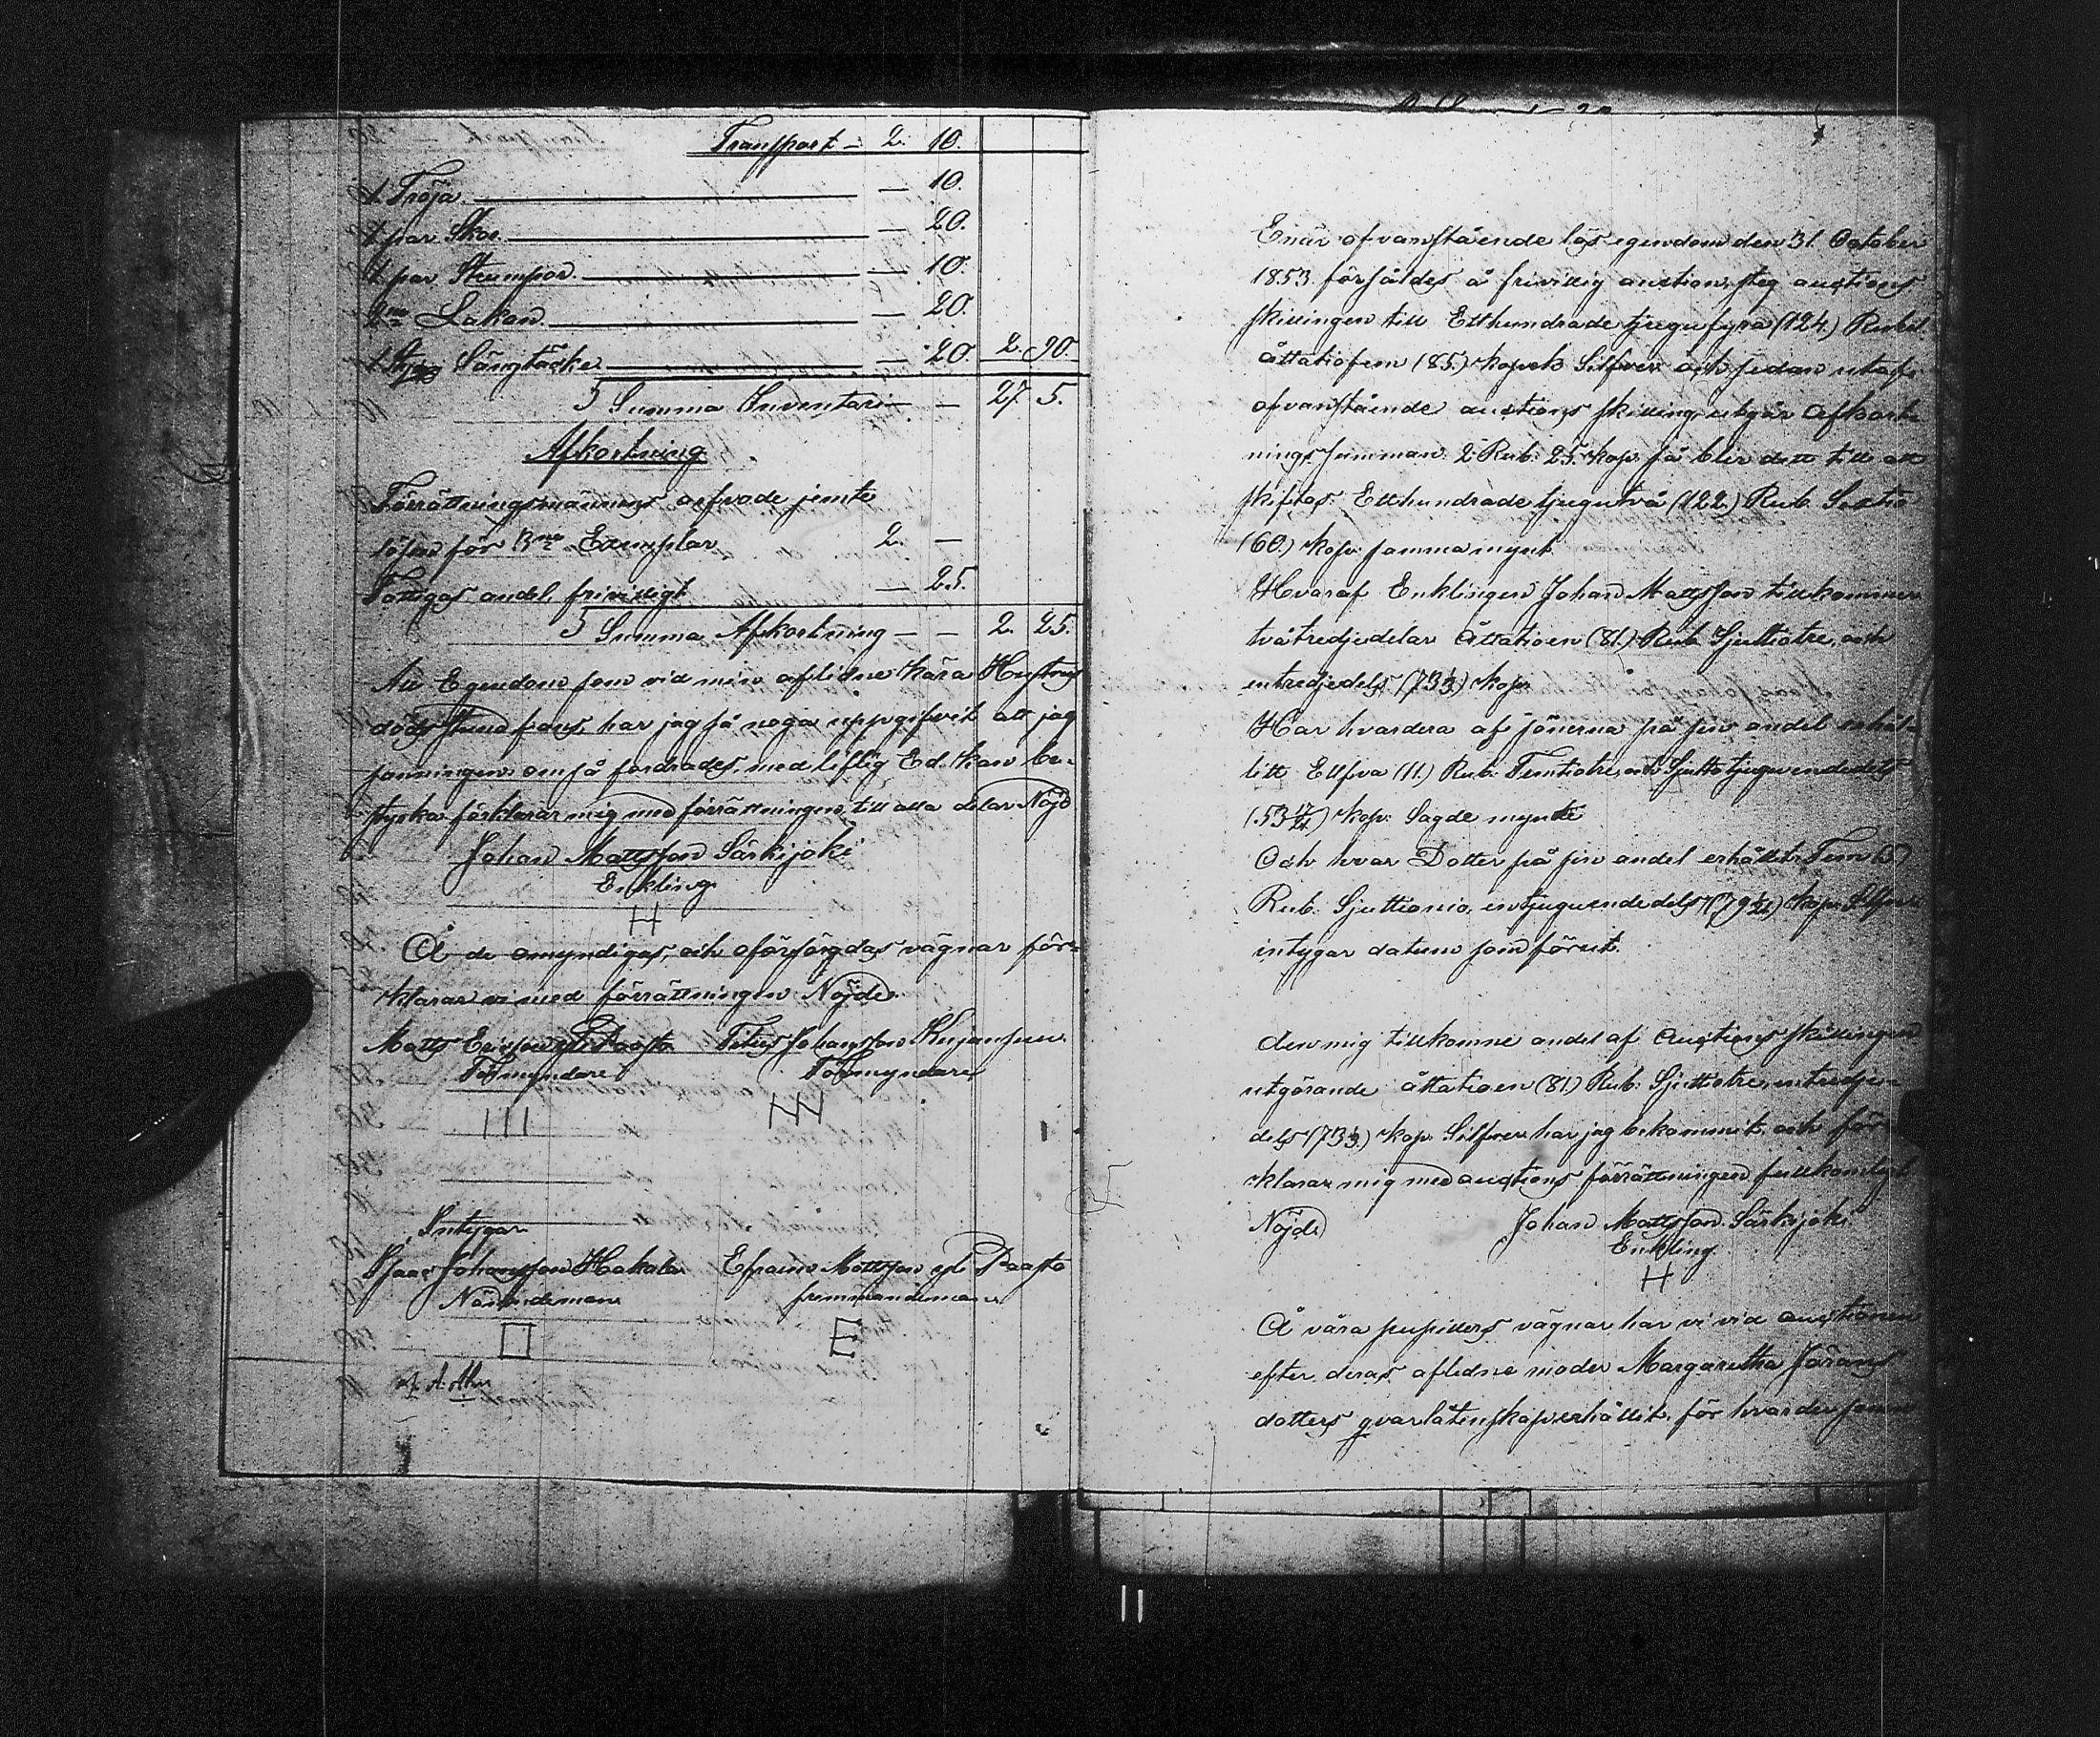 Transport – 2. 10.
1. Tröja — 10.
1 par Skor — 20.
1 par Strumpor — 10.
2ne Lakan — 20.
1 Sängtäcke — 20. 2. 90.
Summa Inventarie — 27. 5.
Afkortning
Förrättningsmännens arfvode jemte
lösen för 3ne Exemplar 2. —
Fattigas andel frivilligt — 25.
Summa Afkortning — — 2. 25.
All Egendom som vid min aflidne kära Hustrus
döds stund fans, har jag så noga uppgifvit att jag
sanningen om så fordrades, med liflig Ed. kan be-
styrka förklarar mig med förrättningen till alla delar Nöjd
Johan Mattsson Särkijoki
Enkling
H
Å de omyndigas, och oförsörgdas vägnar för-
klarar vi med förrättningen Nöjde.
Matts Ericsson yli Paasto Titus Johansson Kujansuu
Förmyndare Förmyndare
III
Intygar
Isaac Johansson Hakala Efraim Mattsson yli Paasto
Nämndeman fremmandeman
E
Enär ofvanstående lös egendom den 31. October
1853. försåldes å frivillig auction, steg auctions
skillingen till Etthundrade tjugufyra (124.) Rubel
åttatiofem (85.) kopek Silfver och sedan utaf
ofvanstående auctions skilling, utgår Afkort-
nings summan 2 Rub: 25. kop. så blir dett till att
skiftas: Etthundrade tjugutvå (122.) Rub. Sextio
(60.) kop: samma mynt.
Hvaraf Enklingen Johan Mattsson tillkommer
tvåtredjedelar Åttatioen (81.) Rub Sjuttiotre, och
entredjedels (73 1/3) kop.
Har hvardera af sönerna på sin andel erhål-
litt Ellfva (11.) Rub: Femtiotre, och Sjutto tjuguendedels
(53 17/21) kop: Sagde mynt
Och hvar Dotter på sin andel erhållit Fem (5)
Rub. Sjuttionio, en tjuguendedels (79 1/21) kop: Silfver
intygar datum som förut.
den mig tillkomne andel af Auctions skillingen
utgörande åttatioen (81.) Rub: Sjuttiotre, entredje-
dels (73 1/3.) kop. Silfver har jag bekommit, och för
klarar mig med auctions förrättningen fullkomligt
Nöjd. Johan Mattsson Särkijoki
Enkling.
H
Å våra pupillers vägnar har vi vid auctionen
efter deras aflidne moder Margaretha Jörans
dotters qvarlåtenskap erhållit, för hvardera
11